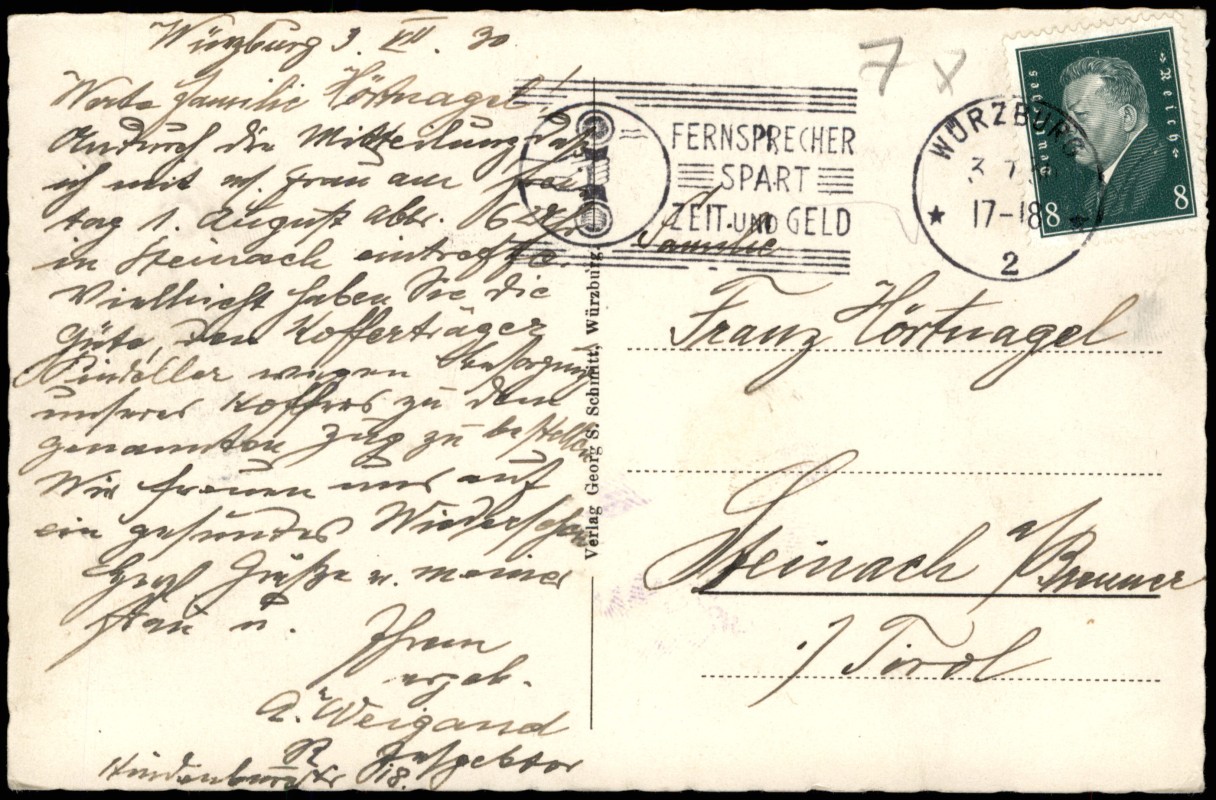 Würzburg 3. VII. 30
Werte Familie Hörtnagel!
Andurch die Mitteilung, daß
ich mit m. Frau am Frei-
tag 1. August abds. 6
in Steinach eintreffe.
Vielleicht haben Sie die
Güte, den Kofferträger
wegen Besorgung
unseres Koffers zu dem
genannten Zug zu bestellen
Wir freuen uns auf
ein gesundes Wiedersehen
Herzl. Grüße v. meiner
Frau u. Ihrem
ergeb.
A. Weigand
R Inspektor
Hindenburgstr 18.
Verlag Georg S. Schmitt, Würzburg
FERNSPRECHER
SPART
ZEIT UND GELD
WÜRZBURG
3 7
17-18
2
Deutsches Reich
8 8
7 x
Familie
Franz Hörtnagel
Steinach a/Brenner
Tirol